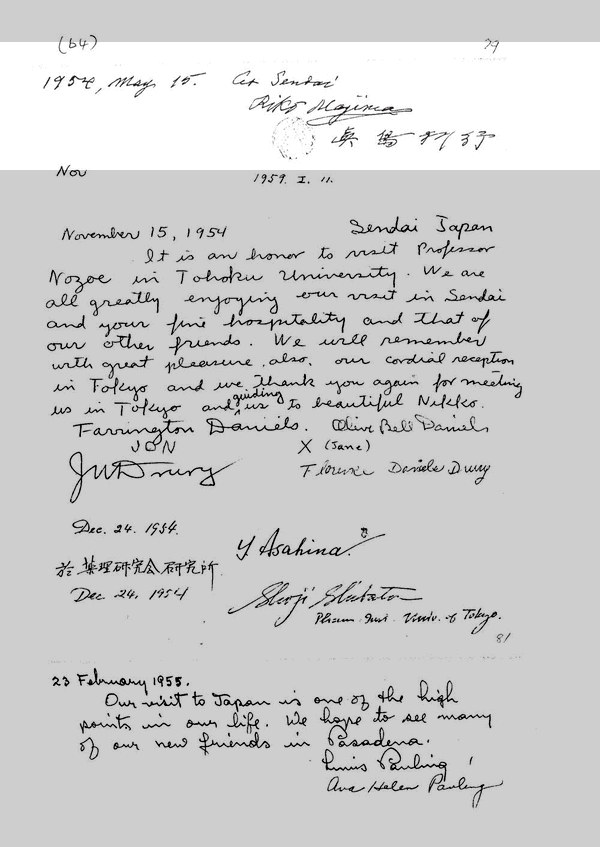 (64) 79
1954, May 15. At Sendai
Riko Majima
眞島利行
Nov
1959. I. 11.
November 15, 1954 Sendai Japan
It is an honor to visit Professor
Nozoe in Tohoku University. We are
all greatly enjoying our visit in Sendai
and your fine hospitality and that of
our other friends. We will remember
with great pleasure, also, our cordial reception
in Tokyo and we thank you again for meeting
us in Tokyo and guiding us to beautiful Nikko.
Farrington Daniels. Olive Bell Daniels
JON X (Jane)
J W Drury Florence Daniels Drury
Dec. 24. 1954.
Y. Asahina.
於 薬理研究会研究所
Dec. 24, 1954
Shoji Shibata
Pharm. Inst. Univ. of Tokyo.
81
23 February 1955.
Our visit to Japan is one of the high
points in our life. We hope to see many
of our new friends in Pasadena.
Linus Pauling
Ava Helen Pauling